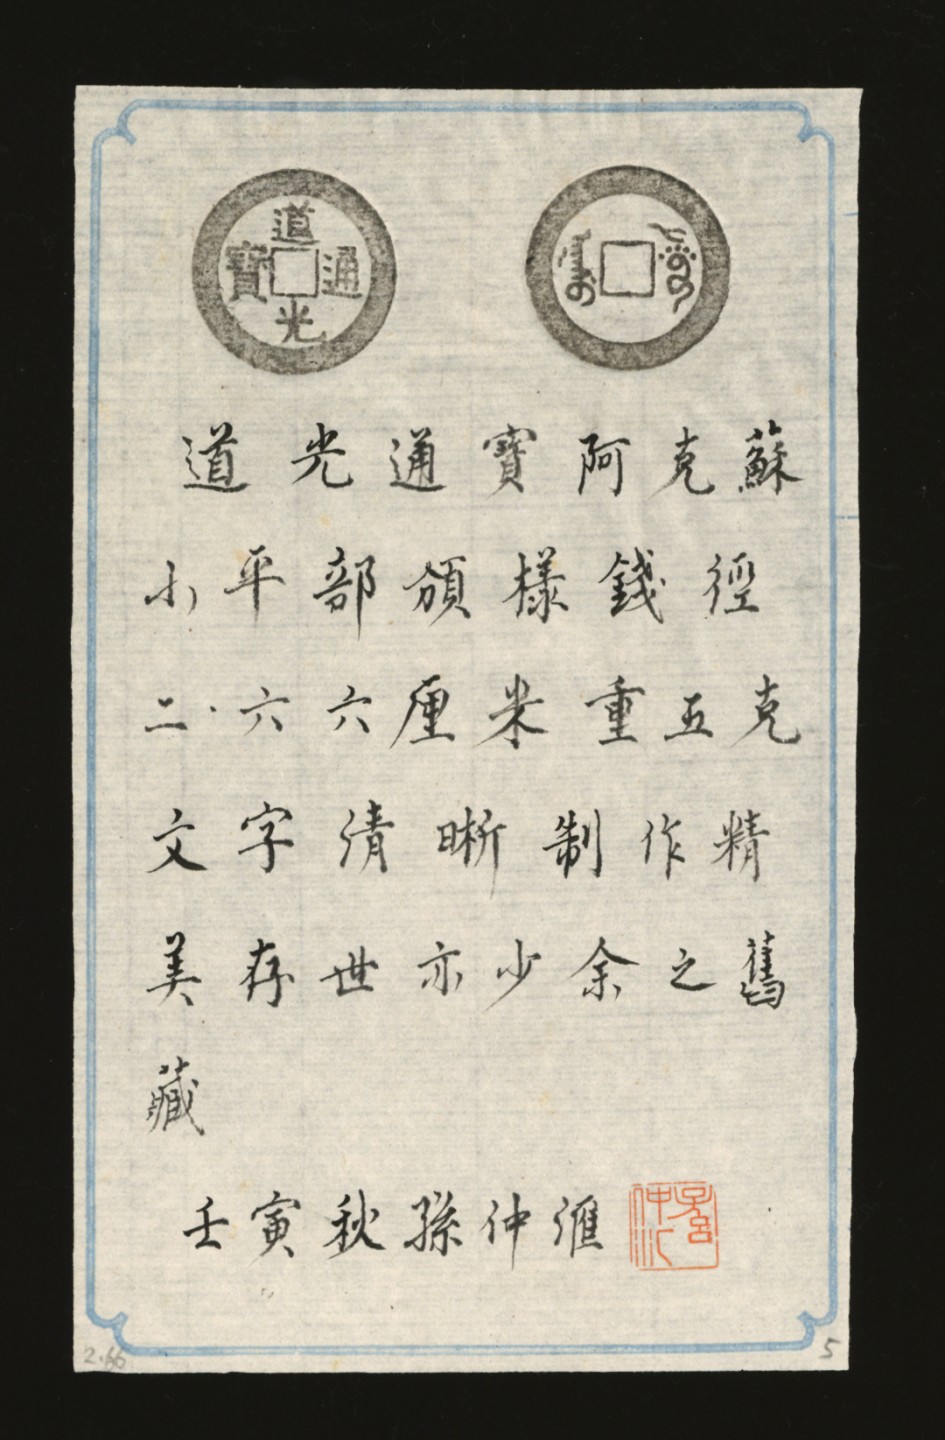 道光通寶
道光通寶阿克蘇
小平部頒樣錢徑
二·六六厘米重五克
文字清晰制作精
美存世亦少余之舊
藏
壬寅秋孫仲滙
2.66
5